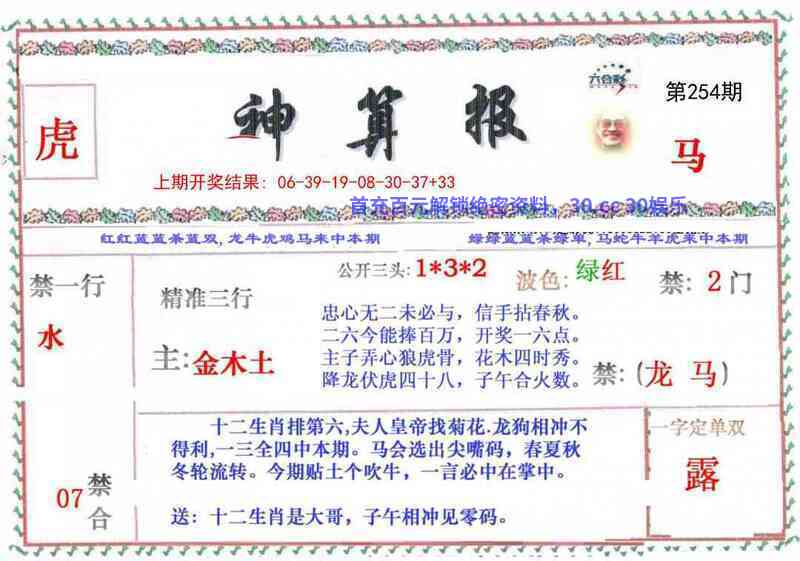 六合彩
第254期
虎
神算报
马
上期开奖结果：06-39-19-08-30-37+33
首充百元解锁绝密资料，30.cc 30娱乐
红红蓝蓝杀蓝双，龙牛虎鸡马来中本期
绿绿蓝蓝杀绿单，马蛇牛羊虎来中本期
禁一行
水
精准三行
主：金木土
公开三头：1*3*2
波色：绿红
禁：2门
忠心无二未必与，信手拈春秋。
二六今能捧百万，开奖一六点。
主子弄心狼虎骨，花木四时秀。
降龙伏虎四十八，子午合火数。
禁：(龙 马)
07
禁合
十二生肖排第六,夫人皇帝找菊花.龙狗相冲不
得利,一三全四中本期。马会选出尖嘴码，春夏秋
冬轮流转。今期贴土个吹牛，一言必中在掌中。
送：十二生肖是大哥，子午相冲见零码。
一字定单双
露